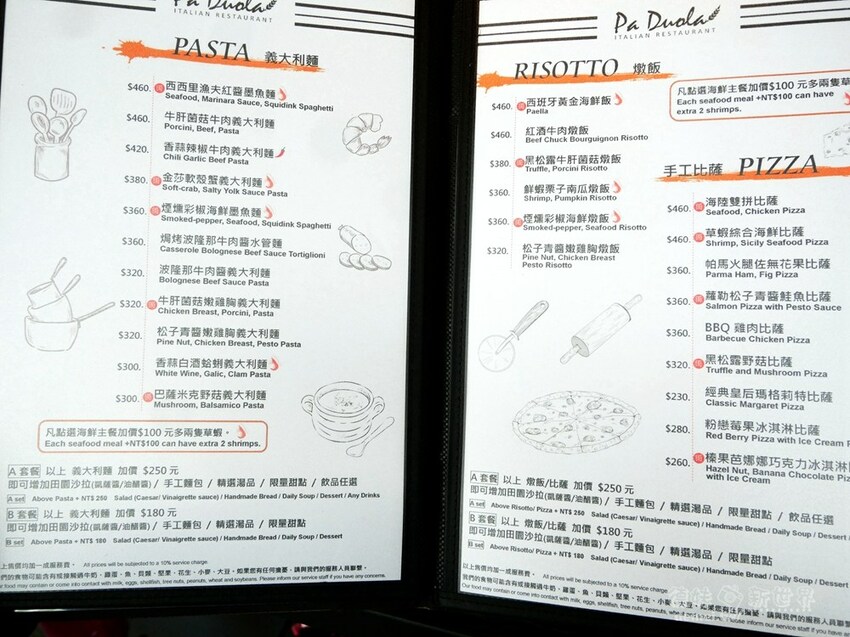 Pa Duola
ITALIAN RESTAURANT
PASTA 義大利麵
$460. 西西里漁夫紅醬墨魚麵
Seafood, Marinara Sauce, Squidink Spaghetti
$460. 牛肝菌菇牛肉義大利麵
Porcini, Beef, Pasta
$420. 香蒜辣椒牛肉義大利麵
Chili Garlic Beef Pasta
$380. 金莎軟殼蟹義大利麵
Soft-crab, Salty Yolk Sauce Pasta
$360. 煙燻彩椒海鮮墨魚麵
Smoked-pepper, Seafood, Squidink Spaghetti
$360. 焗烤波隆那牛肉醬水管麵
Casserole Bolognese Beef Sauce Tortiglioni
$320. 波隆那牛肉醬義大利麵
Bolognese Beef Sauce Pasta
$320. 牛肝菌菇嫩雞胸義大利麵
Chicken Breast, Porcini, Pasta
$320. 松子青醬嫩雞胸義大利麵
Pine Nut, Chicken Breast, Pesto Pasta
$300. 香蒜白酒蛤蜊義大利麵
White Wine, Galic, Clam Pasta
$300. 巴薩米克野菇義大利麵
Mushroom, Balsamico Pasta
凡點選海鮮主餐加價$100 元多兩隻草蝦。
Each seafood meal +NT$100 can have extra 2 shrimps.
A 套餐 以上 義大利麵 加價 $250 元
即可增加田園沙拉(凱薩醬/油醋醬) / 手工麵包 / 精選湯品 / 限量甜點 / 飲品任選
A set Above Pasta + NT$ 250 Salad (Caesar/ Vinaigrette sauce) / Handmade Bread / Daily Soup / Dessert / Any Drinks
B 套餐 以上 義大利麵 加價 $180 元
即可增加田園沙拉(凱薩醬/油醋醬) / 手工麵包 / 精選湯品 / 限量甜點
B set Above Pasta + NT$ 180 Salad (Caesar/ Vinaigrette sauce) / Handmade Bread / Daily Soup / Dessert
以上售價均加一成服務費。 All prices will be subjected to a 10% service charge.
我們的食物可能含有或接觸過牛奶、雞蛋、魚、貝類、堅果、花生、小麥、大豆，如果您有任何擔憂，請與我們的服務人員聯繫。
Our food may contain or come into contact with milk, eggs, shellfish, tree nuts, peanuts, wheat and soybeans. Please inform our service staff if you have any concerns.
Pa Duola
ITALIAN RESTAURANT
RISOTTO 燉飯
凡點選海鮮主餐加價$100 元多兩隻草
Each seafood meal +NT$100 can have
extra 2 shrimps.
$460. 西班牙黃金海鮮飯
Paella
$460. 紅酒牛肉燉飯
Beef Chuck Bourguignon Risotto
$380. 黑松露牛肝菌菇燉飯
Truffle, Porcini Risotto
$360. 鮮蝦栗子南瓜燉飯
Shrimp, Pumpkin Risotto
$360. 煙燻彩椒海鮮燉飯
Smoked-pepper, Seafood Risotto
$320. 松子青醬嫩雞胸燉飯
Pine Nut, Chicken Breast
Pesto Risotto
手工比薩 PIZZA
$460. 海陸雙拼比薩
Seafood, Chicken Pizza
$460. 草蝦綜合海鮮比薩
Shrimp, Sicily Seafood Pizza
$360. 帕馬火腿佐無花果比薩
Parma Ham, Fig Pizza
$360. 蘿勒松子青醬鮭魚比薩
Salmon Pizza with Pesto Sauce
$360. BBQ 雞肉比薩
Barbecue Chicken Pizza
$320. 黑松露野菇比薩
Truffle and Mushroom Pizza
$230. 經典皇后瑪格莉特比薩
Classic Margaret Pizza
$280. 粉戀莓果冰淇淋比薩
Red Berry Pizza with Ice Cream
$260. 榛果芭娜娜巧克力冰淇淋
Hazel Nut, Banana Chocolate
with Ice Cream
A 套餐 以上 燉飯/比薩 加價 $250 元
即可增加田園沙拉(凱薩醬/油醋醬) / 手工麵包 / 精選湯品 / 限量甜點 / 飲品任選
A set Above Risotto/ Pizza + NT$ 250 Salad (Caesar/ Vinaigrette sauce) / Handmade Bread / Daily Soup / Dessert
B 套餐 以上 燉飯/比薩 加價 $180 元
即可增加田園沙拉(凱薩醬/油醋醬) / 手工麵包 / 精選湯品 / 限量甜點
B set Above Risotto/ Pizza + NT$ 180 Salad (Caesar/ Vinaigrette sauce) / Handmade Bread / Daily Soup / Dessert
以上售價均加一成服務費。 All prices will be subjected to a 10% service charge.
我們的食物可能含有或接觸過牛奶、雞蛋、魚、貝類、堅果、花生、小麥、大豆，如果您有任何擔憂，請與我們的服務人員聯繫
Our food may contain or come into contact with milk, eggs, shellfish, tree nuts, peanuts, wheat and soybeans. Please inform our service staff if you have
新世界